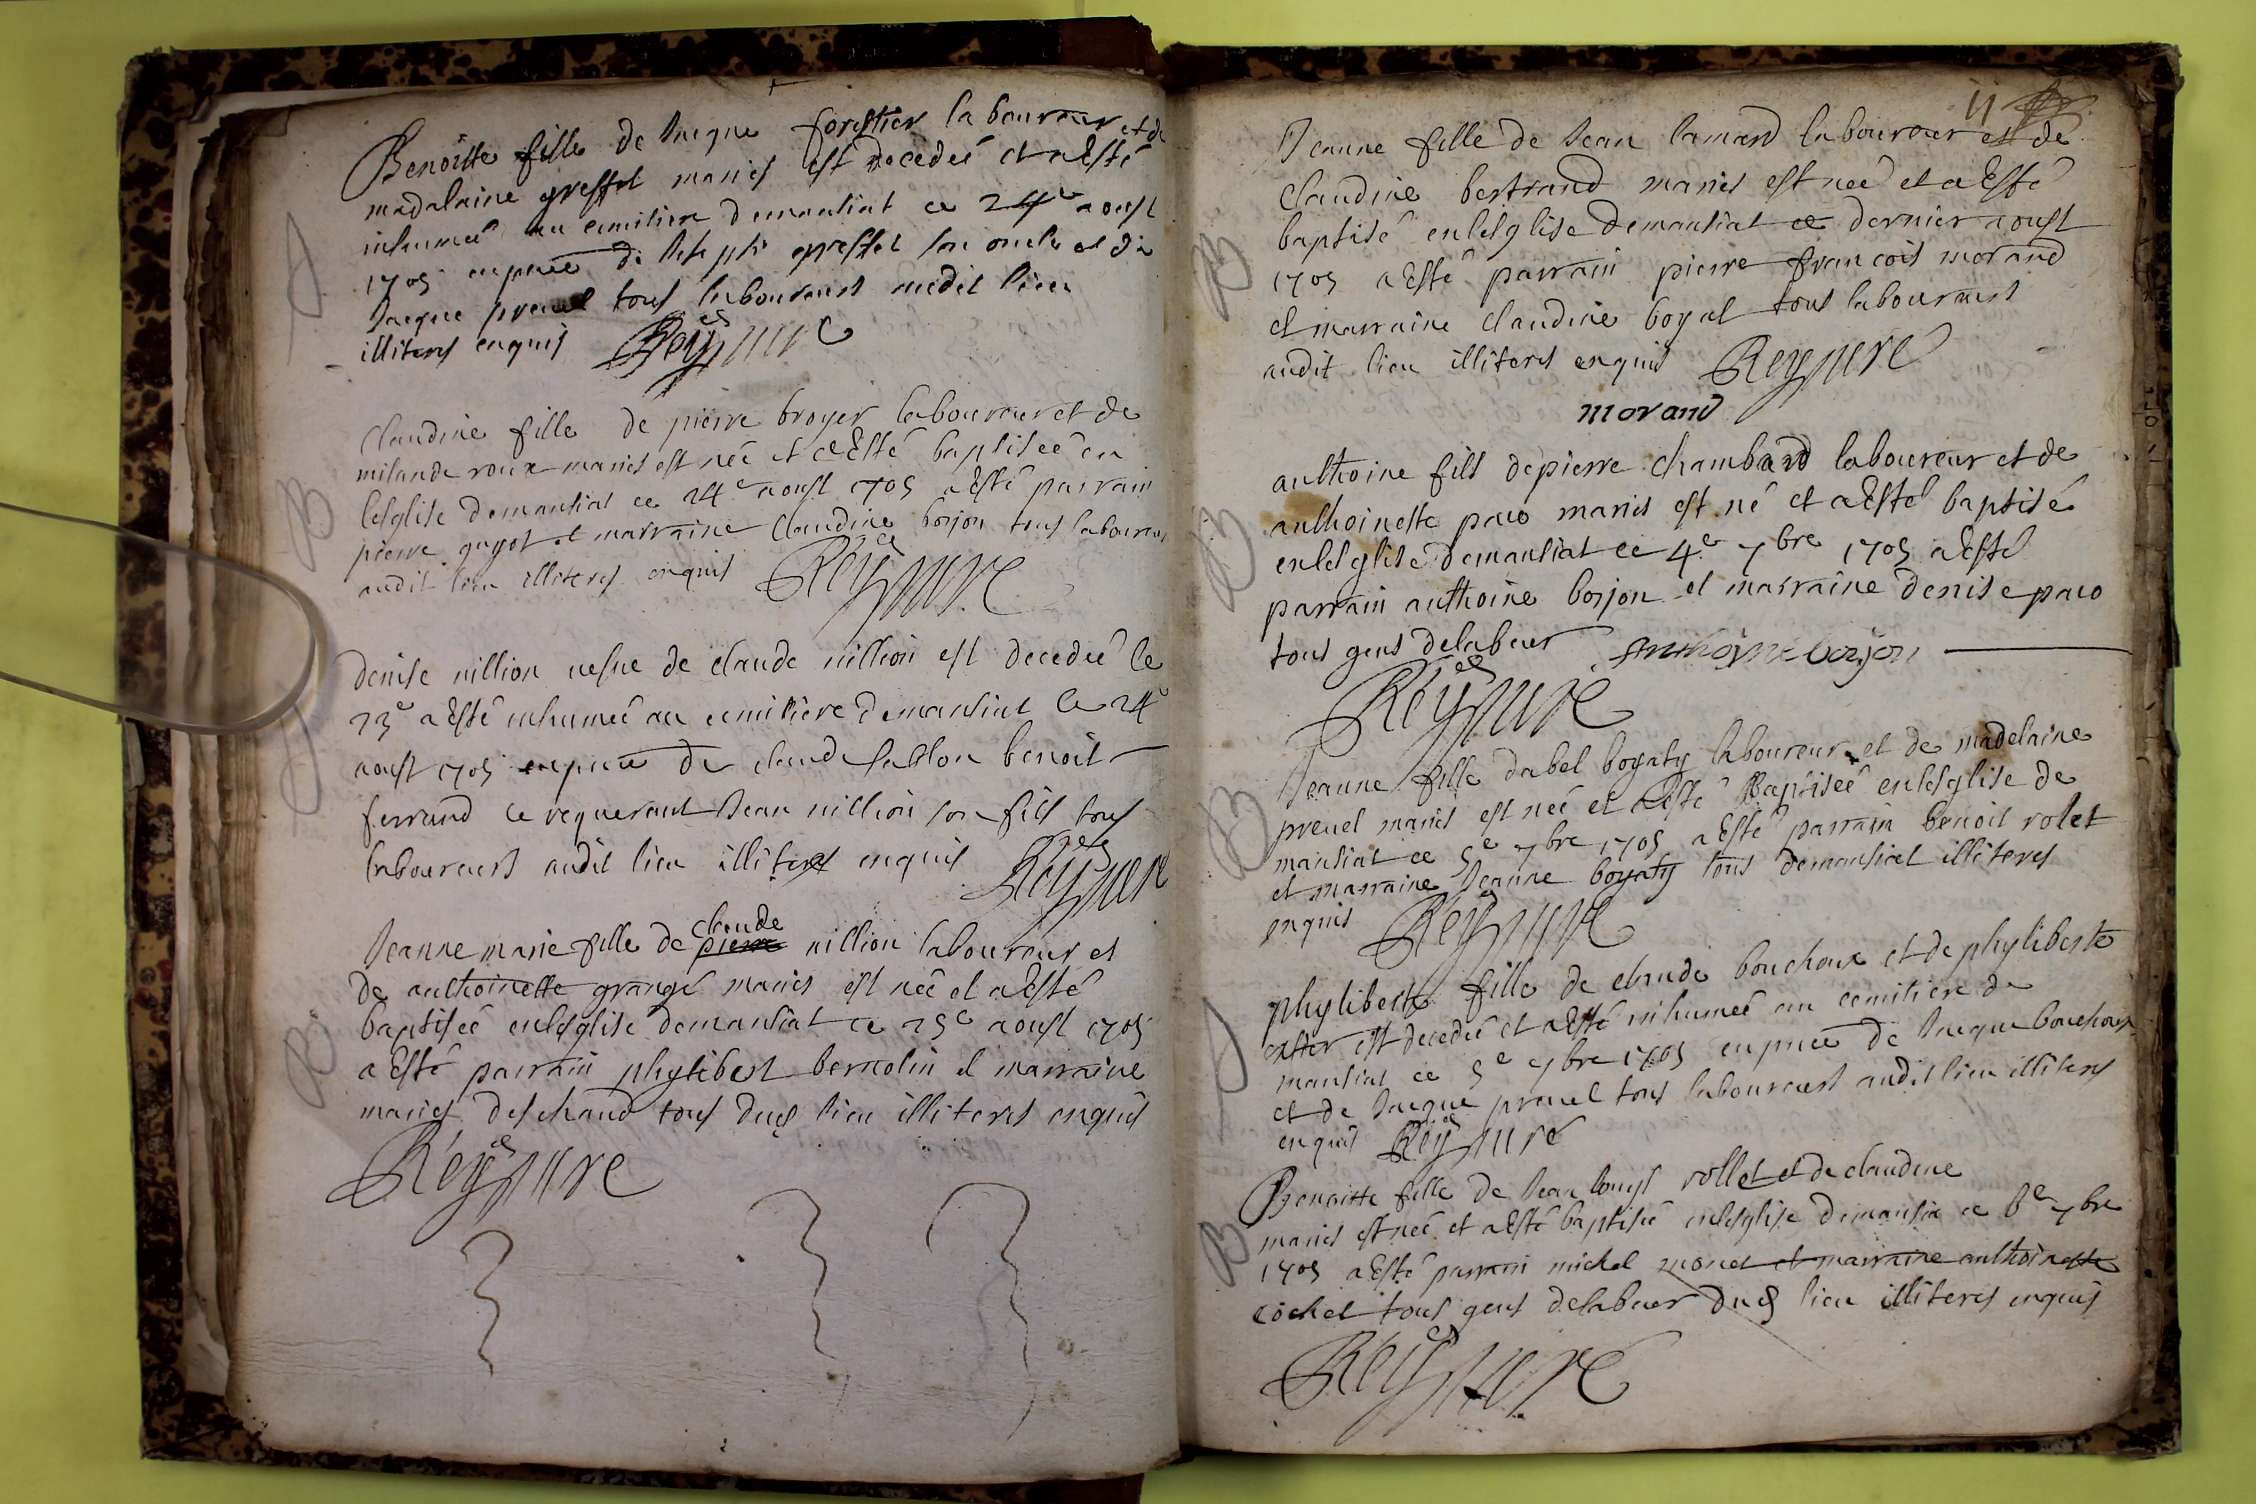 Benoîtte fille de Jacque forestier laboureur et de
madalaine greffet mariés est decedeé et a Esté
inhumeé au cimitiere de mantiat ce 24e aoust
1705 en pnce de greffet son oncle et de
Jacque prevel tous laboureurs audit lieu
illiteres enquis Rey curé
Claudine fille de pierre broyer laboureur et de
milande roux mariés est neé et a Esté baptiseé en
lesglise de mantiat ce 24e aoust 1705 a Esté parrain
pierre guyot et marraine Claudine borjon tous laboureurs
audit lieu illiteres enquis Rey curé
denise villion vefve de claude villion est decedeé le
23e a Esté inhumeé au cimitiere de mantiat le 24e
aoust 1705 en pnce de claude fallon benoit
ferrand ce requerant Jean villion son fils tous
laboureurs audit lieu illiteres enquis Rey curé
claude
Jeanne marie fille de pierre villion laboureur et
de anthoinette grangé mariés est neé et a Esté
baptiseé en lesglise de mantiat ce 25e aoust 1705
a Esté parrain phylibert bernolin et marraine
marie deschand tous dud lieu illiteres enquis
Rey curé
11
Jeanne fille de Jean lamard laboureur et de
Claudine bertrand mariés est neé et a Esté
baptisé en lesglise de mantiat ce dernier aoust
1705 a Esté parrain pierre francois morand
et marraine claudine boyat tous laboureurs
audit lieu illiteres enquis Rey curé
morand
anthoine fils de pierre chambard laboureur et de
anthoinette paco mariés est né et a Esté baptisé
en lesglise de mantiat ce 4e 7bre 1705 a Esté
parrain anthoine borjon et marraine denise paco
tous gens de labeur Anthoyne borjon
Rey curé
Jeanne fille dabel boyaty laboureur et de madelaine
prevel mariés est neé et a Esté Baptiseé en lesglise de
mantiat ce 5e 7bre 1705 a Esté parrain benoit rolet
et marraine Jeanne boyaty tous de mantiat illiteres
enquis Rey curé
phyliberte fille de claude bouchoux et de phyliberte
est decedeé et a Esté inhumeé au cemitiere de
mantiat ce 5e 7bre 1705 en pnce de Jacque bouchoux
et de Jacque prevel tous laboureurs audit lieu illiteres
enquis Rey curé
Benoitte fille de Jean louys rollet et de claudine
mariés est neé et a Esté baptiseé en lesglise de mantia ce 8e 7bre
1705 a Esté parrain michel monet et marraine anthoinette
cochet tous gens de labeur dud lieu illiteres enquis
Rey curé